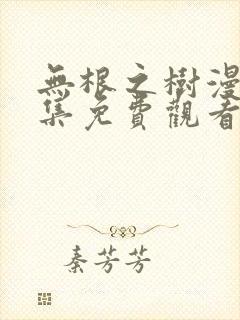 無根之樹漫
集免費觀看
秦芳芳